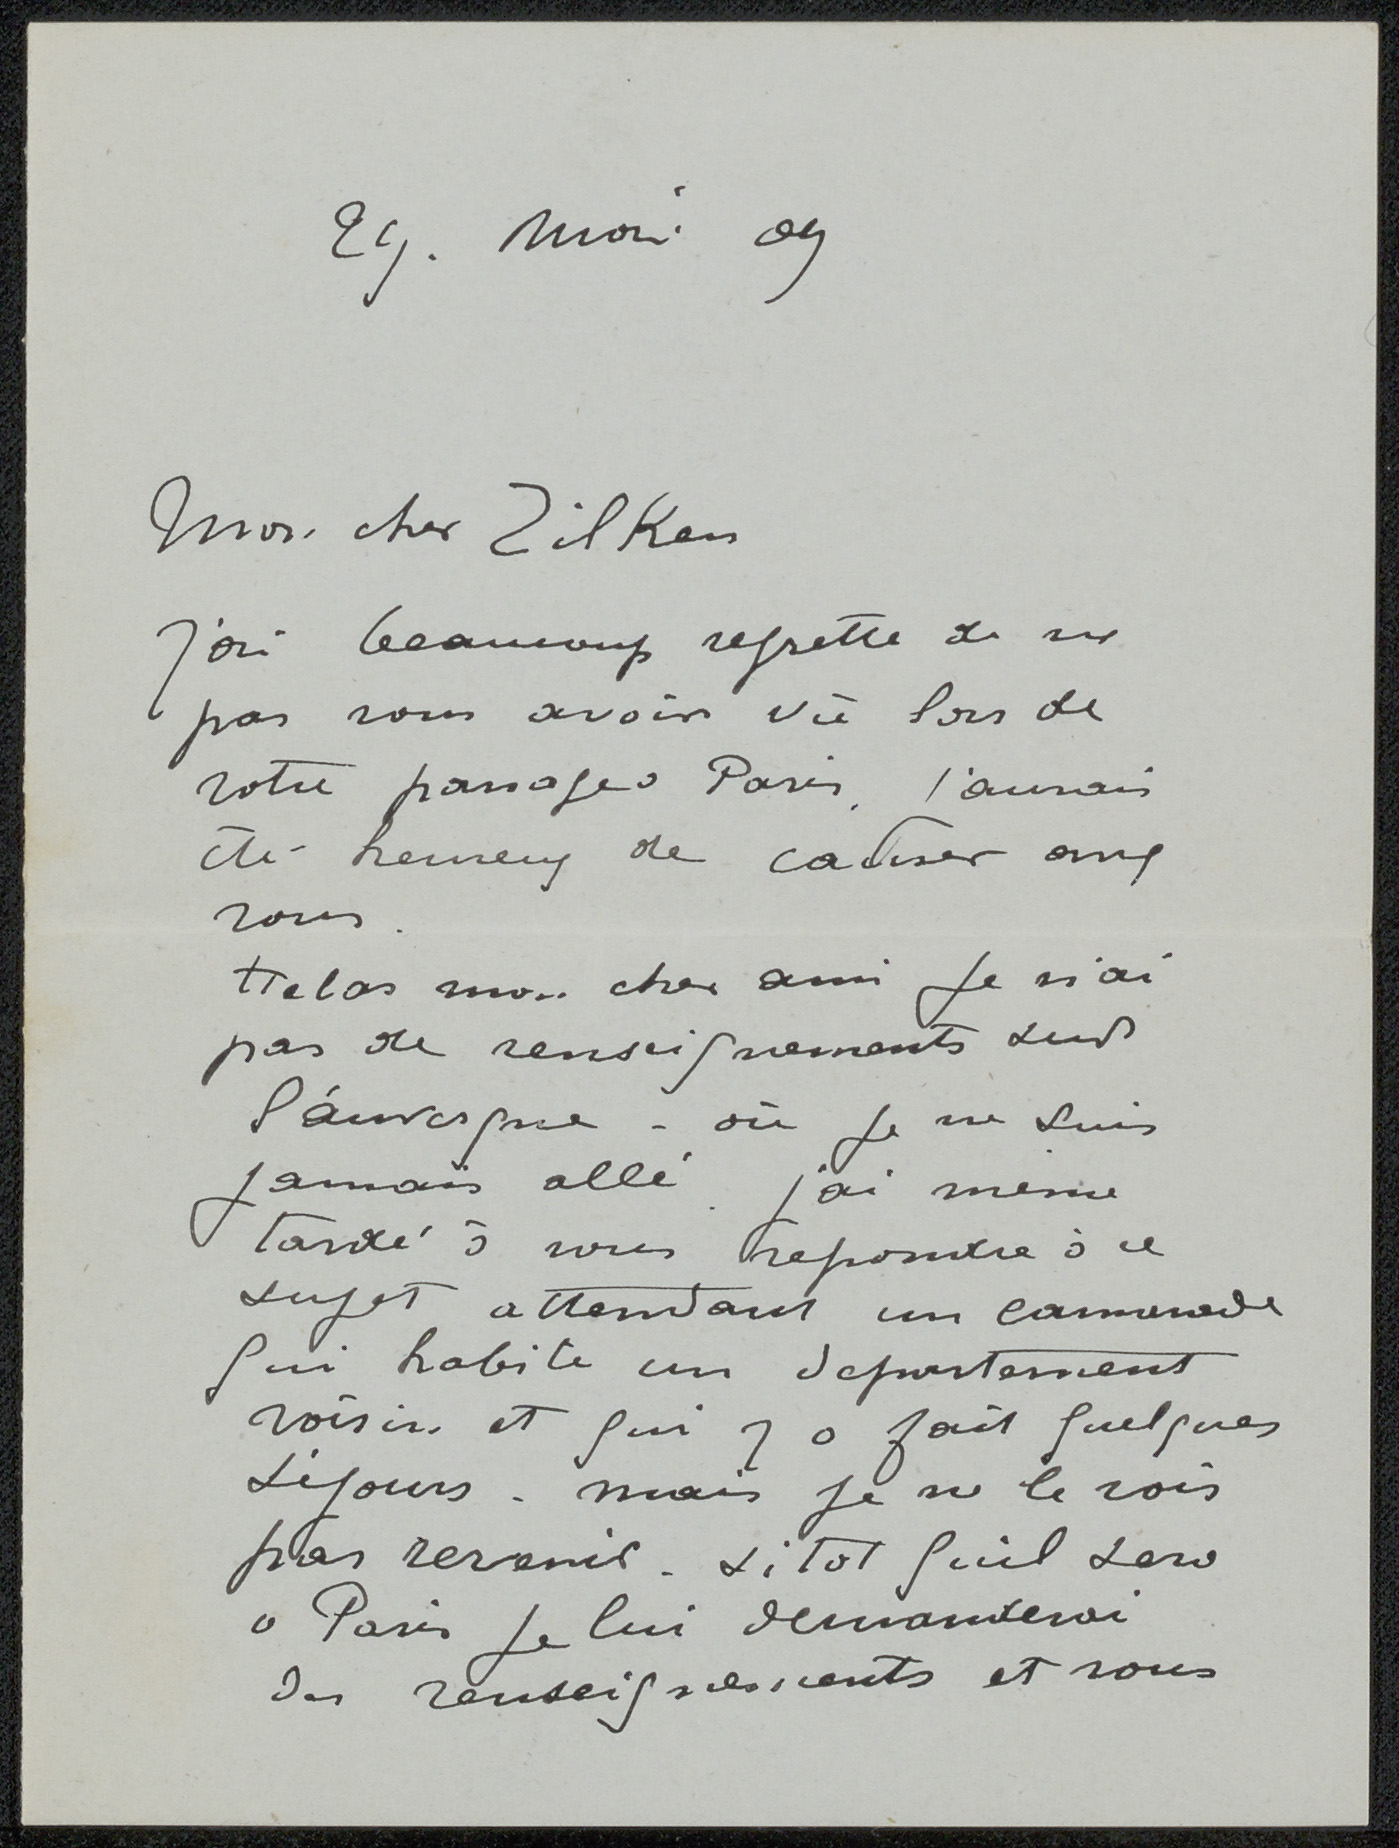 29. Mai 09
Mon cher Zilken
J'ai beaucoup regretté de ne
pas vous avoir vu lors de
votre passage a Paris. j'aurais
été heureux de causer avec
vous.
Helas mon cher ami je n'ai
pas de renseignements sur
l'auvergne - où je ne suis
jamais allé. j'ai même
tardé à vous repondre à ce
sujet attendant un camarade
qui habite un departement
voisin et qui y a fait quelques
séjours - mais je ne le vois
pas revenir - sitot qu'il sera
a Paris je lui demanderai
des renseignements et vous